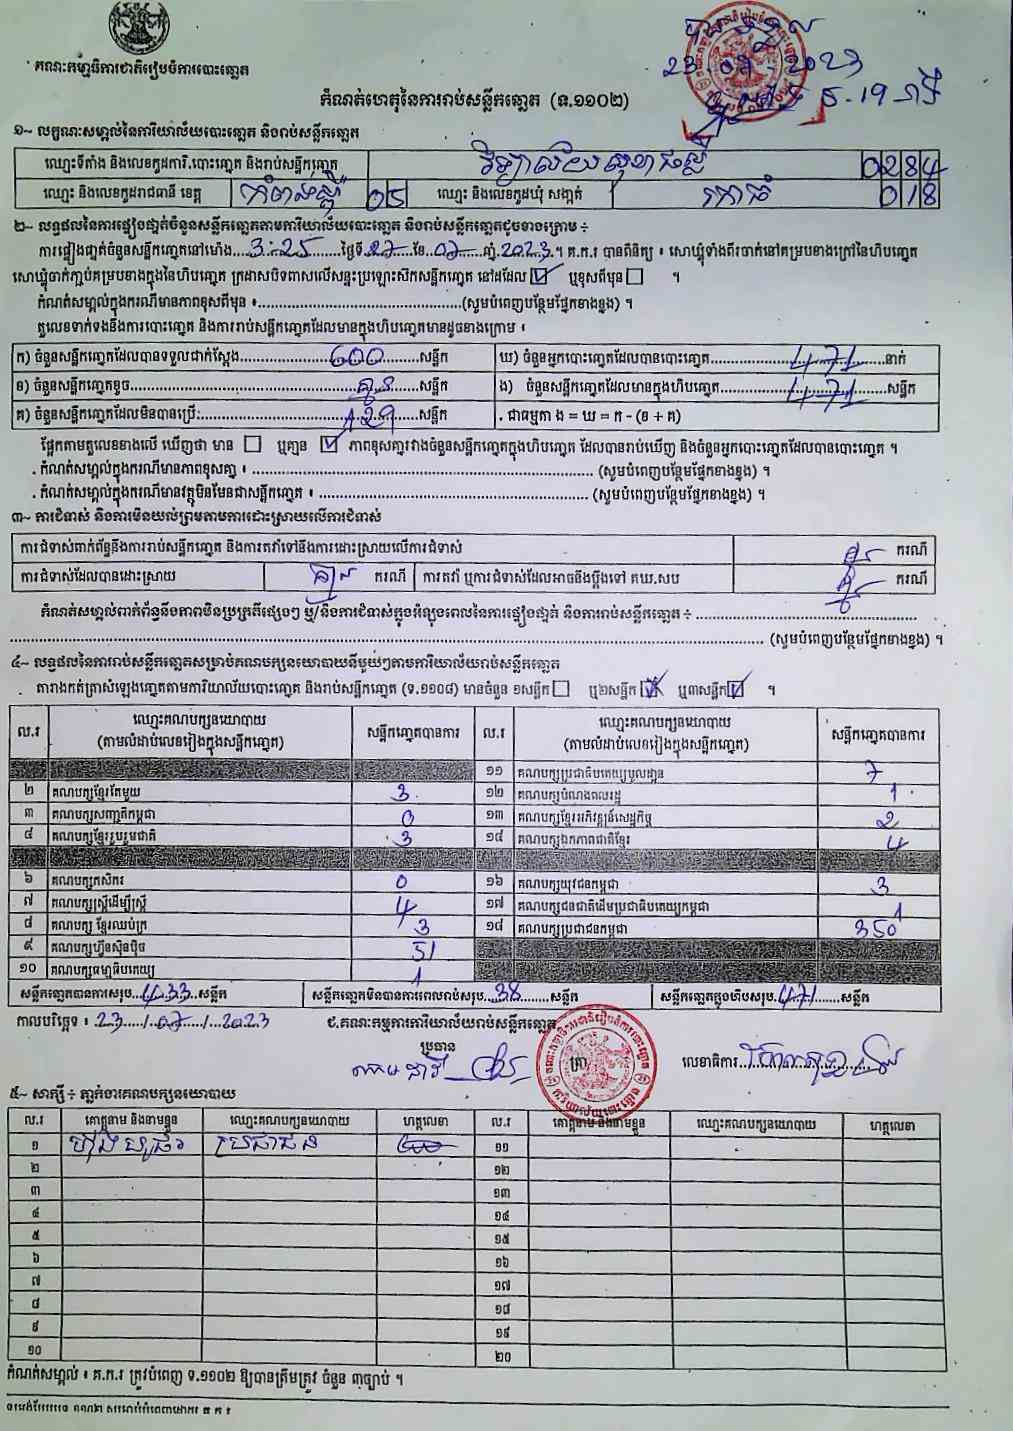 គណៈកម្មាធិការជាតិរៀបចំការបោះឆ្នោត
កំណត់ហេតុនៃការរាប់សន្លឹកឆ្នោត (ទ.១១០២)
១~ លក្ខណៈសម្គាល់នៃការិយាល័យបោះឆ្នោត និងរាប់សន្លឹកឆ្នោត
ឈ្មោះទីតាំង និងលេខកូដការិ.បោះឆ្នោត និងរាប់សន្លឹកឆ្នោត វិទ្យាល័យ 0284
ឈ្មោះ និងលេខកូដរាជធានី ខេត្ត កំពង់ស្ពឺ 05 ឈ្មោះ និងលេខកូដឃុំ សង្កាត់ រកាធំ 018
២~ លទ្ធផលនៃការផ្ទៀងផ្ទាត់ចំនួនសន្លឹកឆ្នោតតាមការិយាល័យបោះឆ្នោត និងរាប់សន្លឹកឆ្នោតដូចខាងក្រោម ៖
ការផ្ទៀងផ្ទាត់ចំនួនសន្លឹកឆ្នោតនៅម៉ោង 3:25 ថ្ងៃទី ខែ 07 ឆ្នាំ 2023 ។ គ.ក.រ បានពិនិត្យ ៖ សោឃ្លុំទាំងពីរចាក់នៅគម្របខាងក្រៅនៃហិបឆ្នោត
សោឃ្លុំចាក់ភ្ជាប់គម្របខាងក្នុងនៃហិបឆ្នោត ក្រដាសបិទពាសលើសន្ទះប្រឡោះស៊កសន្លឹកឆ្នោត នៅដដែល ☑ ឬខុសពីមុន ☐ ។
កំណត់សម្គាល់ក្នុងករណីមានភាពខុសពីមុន ៖ (សូមបំពេញបន្ថែមផ្នែកខាងខ្នង) ។
តួលេខទាក់ទងនឹងការបោះឆ្នោត និងការរាប់សន្លឹកឆ្នោតដែលមានក្នុងហិបឆ្នោតមានដូចខាងក្រោម ៖
ក) ចំនួនសន្លឹកឆ្នោតដែលបានទទួលជាក់ស្តែង 600 សន្លឹក ឃ) ចំនួនអ្នកបោះឆ្នោតដែលបានបោះឆ្នោត 471 នាក់
ខ) ចំនួនសន្លឹកឆ្នោតខូច គ្មាន សន្លឹក ង) ចំនួនសន្លឹកឆ្នោតដែលមានក្នុងហិបឆ្នោត 471 សន្លឹក
គ) ចំនួនសន្លឹកឆ្នោតដែលមិនបានប្រើ 129 សន្លឹក . ជាធម្មតា ង = ឃ = ក - (ខ + គ)
ផ្អែកតាមតួលេខខាងលើ ឃើញថា មាន ☐ ឬគ្មាន ☑ ភាពខុសគ្នារវាងចំនួនសន្លឹកឆ្នោតក្នុងហិបឆ្នោត ដែលបានរាប់ឃើញ និងចំនួនអ្នកបោះឆ្នោតដែលបានបោះឆ្នោត ។
. កំណត់សម្គាល់ក្នុងករណីមានភាពខុសគ្នា ៖ (សូមបំពេញបន្ថែមផ្នែកខាងខ្នង) ។
. កំណត់សម្គាល់ក្នុងករណីមានវត្ថុមិនមែនជាសន្លឹកឆ្នោត ៖ (សូមបំពេញបន្ថែមផ្នែកខាងខ្នង) ។
៣~ ការជំទាស់ និងការមិនយល់ព្រមតាមការដោះស្រាយលើការជំទាស់
ការជំទាស់ពាក់ព័ន្ធនឹងការរាប់សន្លឹកឆ្នោត និងការតវ៉ាទៅនឹងការដោះស្រាយលើការជំទាស់ គ្មាន ករណី
ការជំទាស់ដែលបានដោះស្រាយ គ្មាន ករណី ការតវ៉ា ឬការជំទាស់ដែលអាចនឹងប្តឹងទៅ គឃ.សប គ្មាន ករណី
កំណត់សម្គាល់ពាក់ព័ន្ធនឹងភាពមិនប្រក្រតីផ្សេងៗ ឬ/និងការជំទាស់ក្នុងអំឡុងពេលនៃការផ្ទៀងផ្ទាត់ និងការរាប់សន្លឹកឆ្នោត ៖
(សូមបំពេញបន្ថែមផ្នែកខាងខ្នង) ។
៤~ លទ្ធផលនៃការរាប់សន្លឹកឆ្នោតសម្រាប់គណបក្សនយោបាយនីមួយៗតាមការិយាល័យរាប់សន្លឹកឆ្នោត
តារាងកត់ត្រាសំឡេងឆ្នោតតាមការិយាល័យបោះឆ្នោត និងរាប់សន្លឹកឆ្នោត (ទ.១១០៨) មានចំនួន ១សន្លឹក ☐ ឬ២សន្លឹក ☑ ឬ៣សន្លឹក ☑ ។
ល.រ ឈ្មោះគណបក្សនយោបាយ សន្លឹកឆ្នោតបានការ ល.រ ឈ្មោះគណបក្សនយោបាយ សន្លឹកឆ្នោតបានការ
(តាមលំដាប់លេខរៀងក្នុងសន្លឹកឆ្នោត) (តាមលំដាប់លេខរៀងក្នុងសន្លឹកឆ្នោត)
១១ គណបក្សប្រជាធិបតេយ្យមូលដ្ឋាន 7
២ គណបក្សខ្មែរតែមួយ 3 ១២ គណបក្សបំណងពលរដ្ឋ 1
៣ គណបក្សសញ្ជាតិកម្ពុជា 0 ១៣ គណបក្សខ្មែរអភិវឌ្ឍន៍សេដ្ឋកិច្ច 2
៤ គណបក្សខ្មែររួបរួមជាតិ 3 ១៤ គណបក្សឯកភាពជាតិខ្មែរ 4
៦ គណបក្សកសិករ 0 ១៦ គណបក្សយុវជនកម្ពុជា 3
៧ គណបក្សស្ត្រីដើម្បីស្ត្រី 4 ១៧ គណបក្សជនជាតិដើមប្រជាធិបតេយ្យកម្ពុជា 1
៨ គណបក្ស ខ្មែរឈប់ក្រ 3 ១៨ គណបក្សប្រជាជនកម្ពុជា 350
៩ គណបក្សហ៊្វុនស៊ិនប៉ិច 51
១០ គណបក្សធម្មាធិបតេយ្យ 1
សន្លឹកឆ្នោតបានការសរុប 433 សន្លឹក សន្លឹកឆ្នោតមិនបានការពេលរាប់សរុប 38 សន្លឹក សន្លឹកឆ្នោតក្នុងហិបសរុប 471 សន្លឹក
កាលបរិច្ឆេទ ៖ 23/07/2023 ជ.គណៈកម្មការការិយាល័យរាប់សន្លឹកឆ្នោត
ប្រធាន លេខាធិការ
៥~ សាក្សី ៖ ភ្នាក់ងារគណបក្សនយោបាយ
ល.រ គោត្តនាម និងនាមខ្លួន ឈ្មោះគណបក្សនយោបាយ ហត្ថលេខា ល.រ គោត្តនាម និងនាមខ្លួន ឈ្មោះគណបក្សនយោបាយ ហត្ថលេខា
១ ប្រជាជន ១១
២ ១២
៣ ១៣
៤ ១៤
៥ ១៥
៦ ១៦
៧ ១៧
៨ ១៨
៩ ១៩
១០ ២០
កំណត់សម្គាល់ ៖ គ.ក.រ ត្រូវបំពេញ ទ.១១០២ ឱ្យបានត្រឹមត្រូវ ចំនួន ៣ច្បាប់ ។